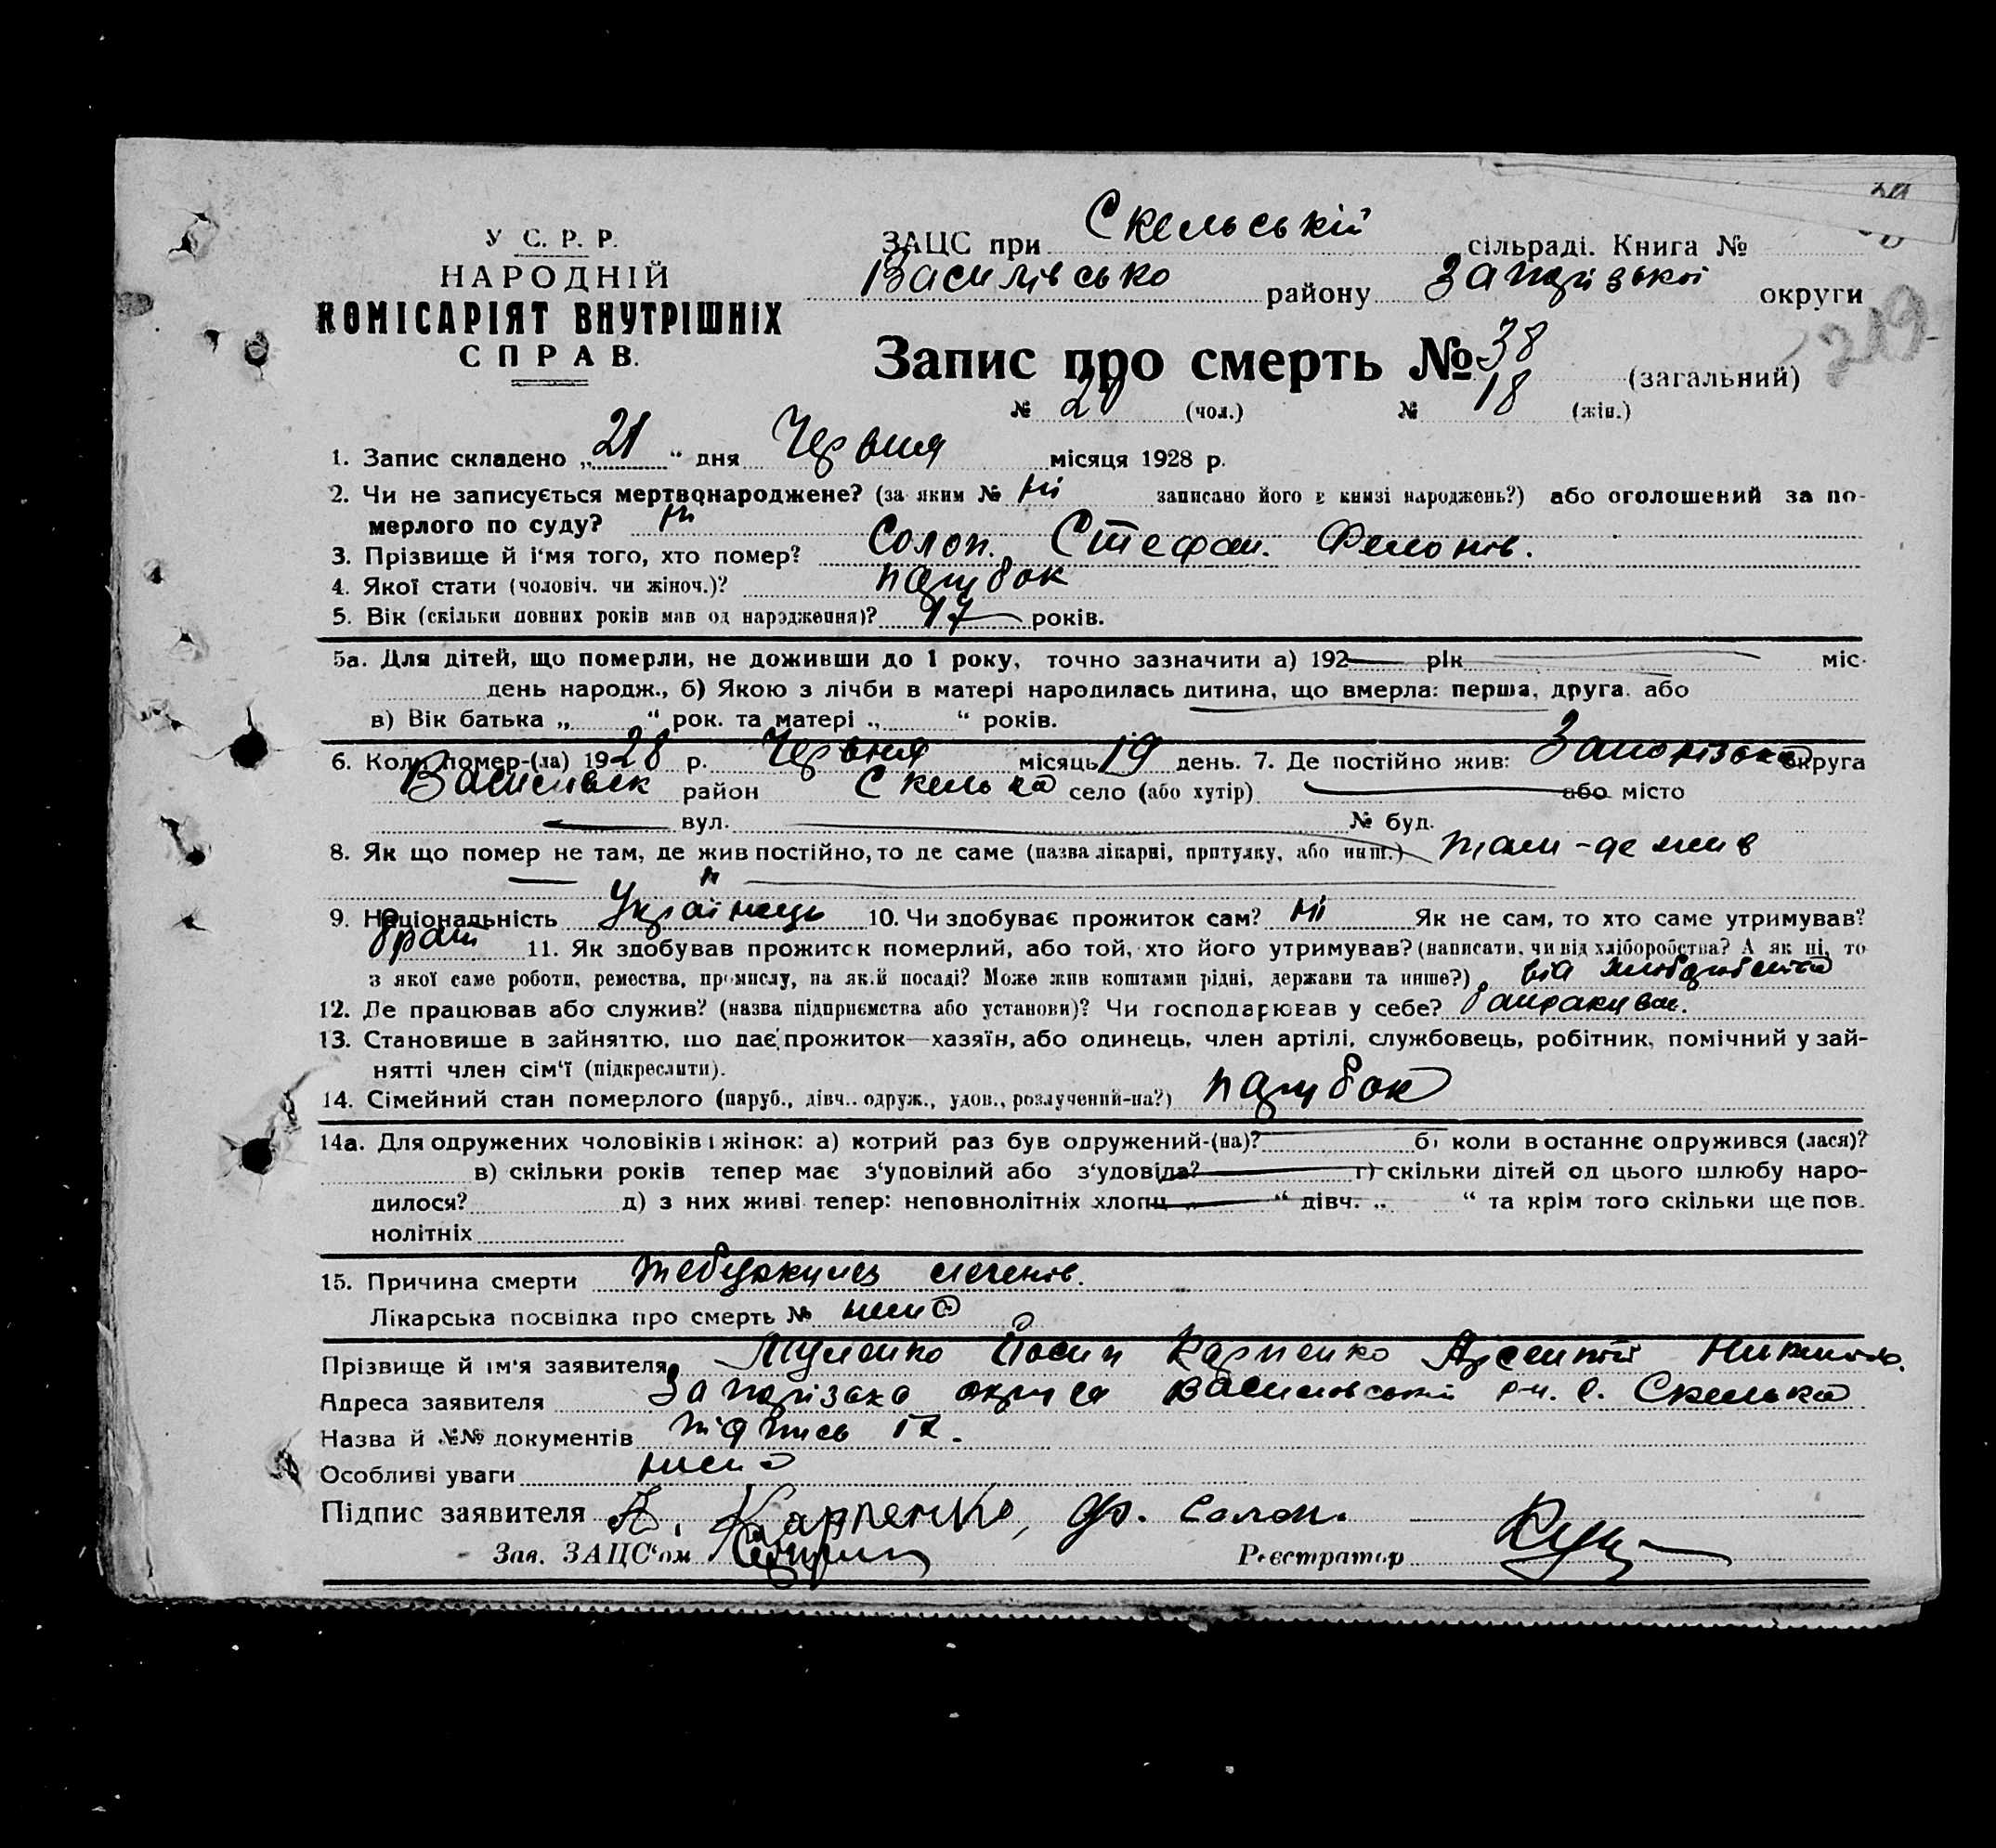 У С. Р. Р.
НАРОДНІЙ
КОМІСАРІЯТ ВНУТРІШНІХ
СПРАВ.
ЗАЦС при Скельській сільраді. Книга №
Василівсько району Запорізької округи
219
Запис про смерть № 38 (загальний)
№ 20 (чол.) № 18 (жін.)
1. Запис складено „ 21 “ дня Червня місяця 1928 р.
2. Чи не записується мертвонароджене? (за яким № ні записано його в книзі народжень?) або оголошений за по-
мерлого по суду? ні
3. Прізвище й і'мя того, хто помер? Солоп. Стефан.
4. Якої стати (чоловіч. чи жіноч.)? парубок
5. Вік (скільки повних років мав од народження)? 17 років.
5а. Для дітей, що померли, не доживши до 1 року, точно зазначити а) 192 рік міс.
день народж., б) Якою з лічби в матері народилась дитина, що вмерла: перша, друга. або
в) Вік батька „ “ рок. та матері „ “ років.
6. Коли помер-(ла) 1928 р. Червня місяць 19 день. 7. Де постійно жив: Запорізька округа
Василівськ район Скелька село (або хутір) або місто
вул. № буд.
8. Як що помер не там, де жив постійно, то де саме (назва лікарні, притулку, або инш.) там-де жив
9. Національність Українець 10. Чи здобуває прожиток сам? ні Як не сам, то хто саме утримував?
брат 11. Як здобував прожиток померлий, або той, хто його утримував? (написати, чи від хліборобства? А як ні, то
з якої саме роботи, ремества, промислу, на якій посаді? Може жив коштами рідні, держави та инше?) від хліборобства
12. Де працював або служив? (назва підприємства або установи)? Чи господарював у себе?
13. Становище в зайняттю, що дає прожиток—хазяїн, або одинець, член артілі, службовець, робітник, помічний у зай-
нятті член сім'ї (підкреслити).
14. Сімейний стан померлого (паруб., дівч.. одруж., удов., розлучений-на?) парубок
14а. Для одружених чоловіків і жінок: а) котрий раз був одружений-(на)? б) коли в останнє одружився (лася)?
в) скільки років тепер має з'удовілий або з'удовіла? г) скільки дітей од цього шлюбу наро-
дилося? д) з них живі тепер: неповнолітніх хлопц. „ “ дівч. „ “ та крім того скільки ще пов.
нолітніх
15. Причина смерти легенів.
Лікарська посвідка про смерть № нема
Прізвище й ім'я заявителя Йосип Карпенко Арсентій
Адреса заявителя Запорізька округа Василівський р-н. с. Скелька
Назва й №№ документів підпись їх.
Особливі уваги нема
Підпис заявителя А. Карпенко, Солоп.
Зав. ЗАЦС'ом Реєстратор